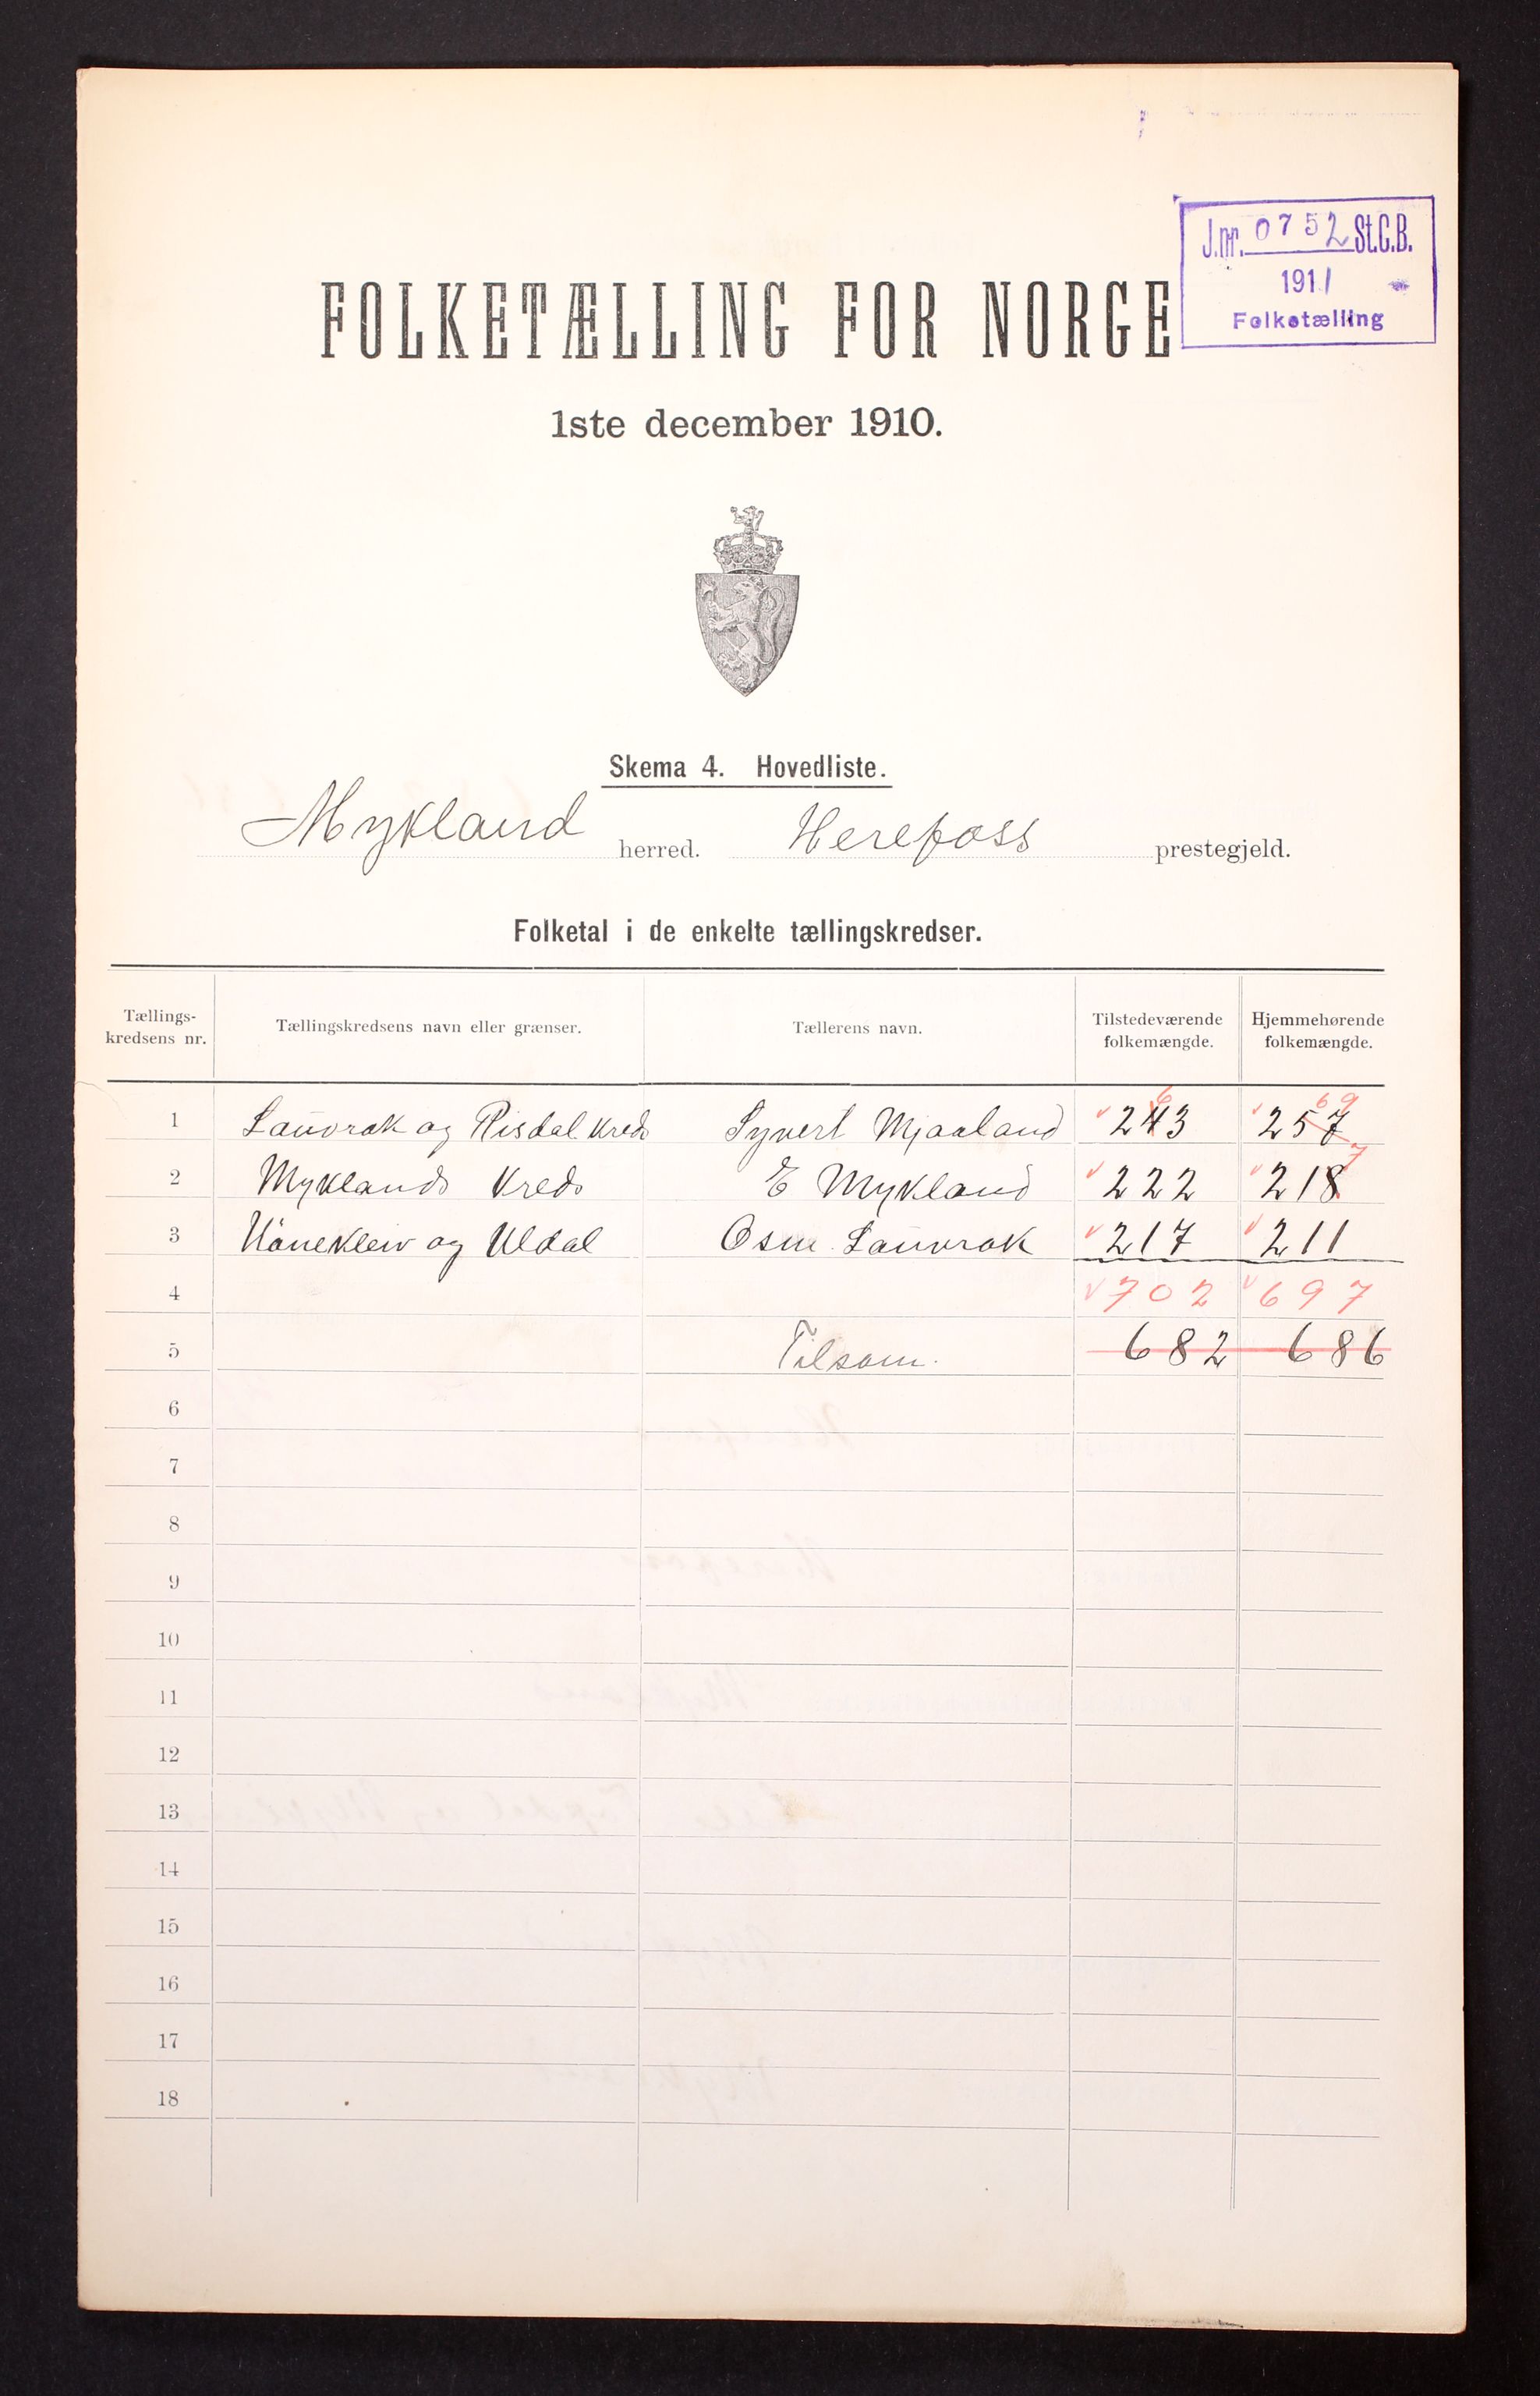 J.nr. 0752 St.C.B.
1911
Folketælling
FOLKETÆLLING FOR NORGE
1ste december 1910.
Skema 4. Hovedliste.
Mykland herred. Herefoss prestegjeld.
Folketal i de enkelte tællingskredser.
Tællings-kredsens nr. Tællingskredsens navn eller grænser. Tællerens navn. Tilstedeværende folkemængde. Hjemmehørende folkemængde.
6 69
1 Lauvrak og Risdal Kreds Syvert Mjaaland 243 257
7
2 Myklands Kreds E Mykland 222 218
3 Håneklev og Uldal Osm. Lauvrak 217 211
4 702 697
5 Tilsam. 682 686
6
7
8
9
10
11
12
13
14
15
16
17
18